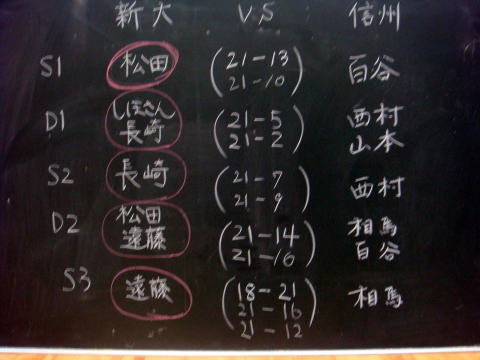 新大 V.S 信州
S1 松田 (21-13 21-10) 百谷
D1 しほさん 長崎 (21-5 21-2) 西村 山本
S2 長崎 (21-7 21-9) 西村
D2 松田 遠藤 (21-14 21-16) 相馬 百谷
S3 遠藤 (18-21 21-16 21-12) 相馬